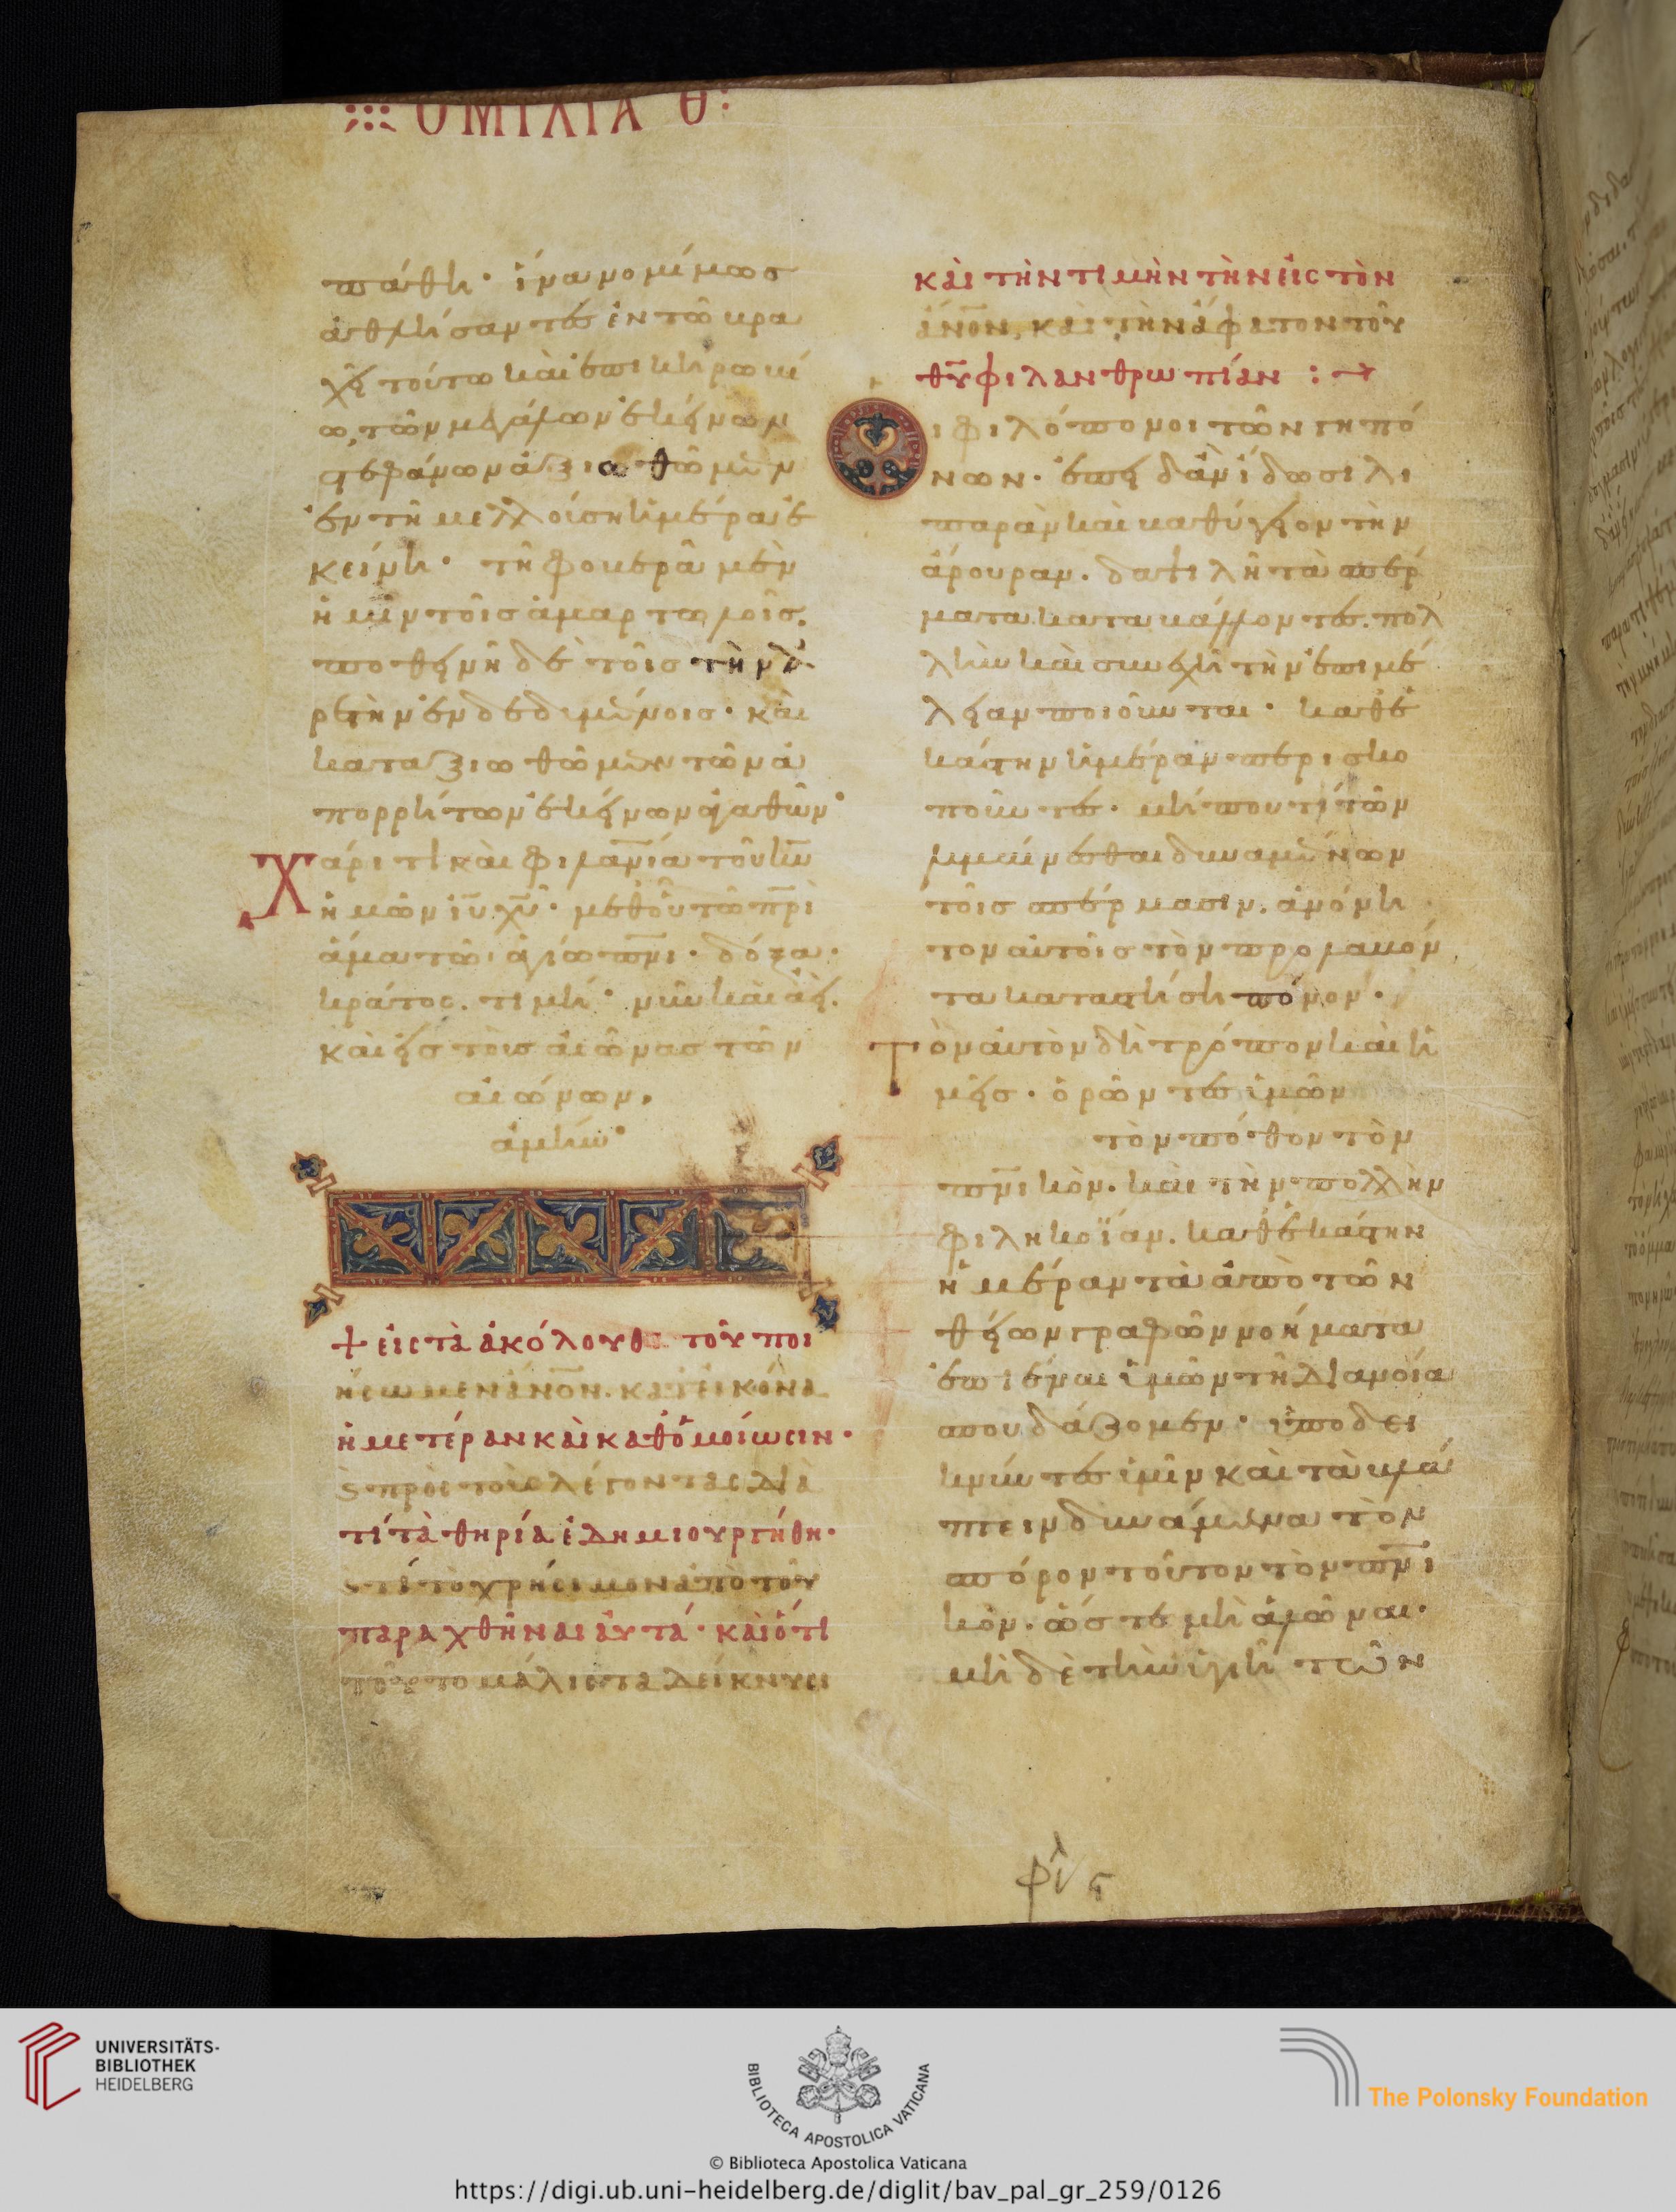 ΟΜΙΛΙΑ Θ:
πάθη· ἵνα νομίμως
ἀθλήσαντες ἐν τῶ κρα
χεῖ τούτω καὶ ἐπικήρω βί
ω, τῶν μεγάλων ἐκείνων
στεφάνων ἀξιωθῶμεν
ἐν τῆ μελλούση ἡμέρα ἐ
κείνη· τῆ φοβερᾶ μὲν
ἡμῖν τοῖς ἁμαρτωλοῖς.
ποθεινῆ δὲ τοῖς τὴν ἀ
ρετὴν ἐνδεδυμένοις· καὶ
καταξιωθῶμεν τῶν ἀ
πορρήτων ἐκείνων ἀγαθῶν·
Χάριτι καὶ φιλανία τοῦ κυ
ἡμῶν ιυ χυ· μεθ' οὗ τῶ πρὶ
ἅμα τῶ ἁγίω πνι· δόξα·
κράτος. τιμή· νῦν καὶ ἀεί.
καὶ εἰς τοὺς αἰῶνας τῶν
αἰώνων.
ἀμήν·
+ εἰς τὰ ἀκόλουθα τοῦ ποι
ήσωμεν ἄνον. κατ' εἰκόνα
ἡμετέραν καὶ καθ' ὁμοίωσιν·
ϛ πρὸς τοὺς λέγοντας διὰ
τί τὰ θηρία ἐδημιουργήθη·
ϛ τί τὸ χρήσιμον ἀπὸ τοῦ
παραχθῆναι αὐτά· καὶ ὅτι
τοῦτο μάλιστα δείκνυσι
καὶ τὴν τιμὴν τὴν εἰς τὸν
ἄνον, καὶ τὴν ἄφατον τοῦ
θυ φιλανθρωπίαν :→
Οἱ φιλόπονοι τῶν γηπό
νων· ἐπειδὰν ἴδωσι λι
παρὰν καὶ καθύγειον τὴν
ἄρουραν. δαψιλῆ τὰ σπέρ
ματα καταβάλλοντες. πολ
λὴν καὶ συνεχῆ τὴν ἐπιμέ
λειαν ποιοῦνται· καθ' ἑ
κάστην ἡμέραν περισκο
ποῦντες· μήπου τί τῶν
λυμαίνεσθαι δυναμένων
τοῖς σπέρμασιν. ἀνόνη
τον αὐτοῖς τὸν προλαβόν
τα καταστήση πόνον·
Τὸν αὐτὸν δὴ τρόπον καὶ ἡ
μεῖς· ὁρῶντες ὑμῶν
τὸν πόθον τὸν
πνικὸν. καὶ τὴν πολλὴν
φιληκοΐαν. καθ' ἑκάστην
ἡμέραν τὰ ἀπὸ τῶν
θείων γραφῶν νοήματα
ἐπιέναι ὑμῶν τῆ διανοία
σπουδάζομεν· ὑποδει
κνύντες ὑμῖν καὶ τὰ βλά
πτειν δυνάμενα τὸν
σπόρον τοῦτον τὸν πνι
κὸν· ὥστε μὴ ἁλῶναι·
μὴ δὲ τὴν ὑγιῆ τῶν
UNIVERSITÄTS-
BIBLIOTHEK
HEIDELBERG
BIBLIOTECA APOSTOLICA VATICANA
The Polonsky Foundation
© Biblioteca Apostolica Vaticana
https://digi.ub.uni-heidelberg.de/diglit/bav_pal_gr_259/0126